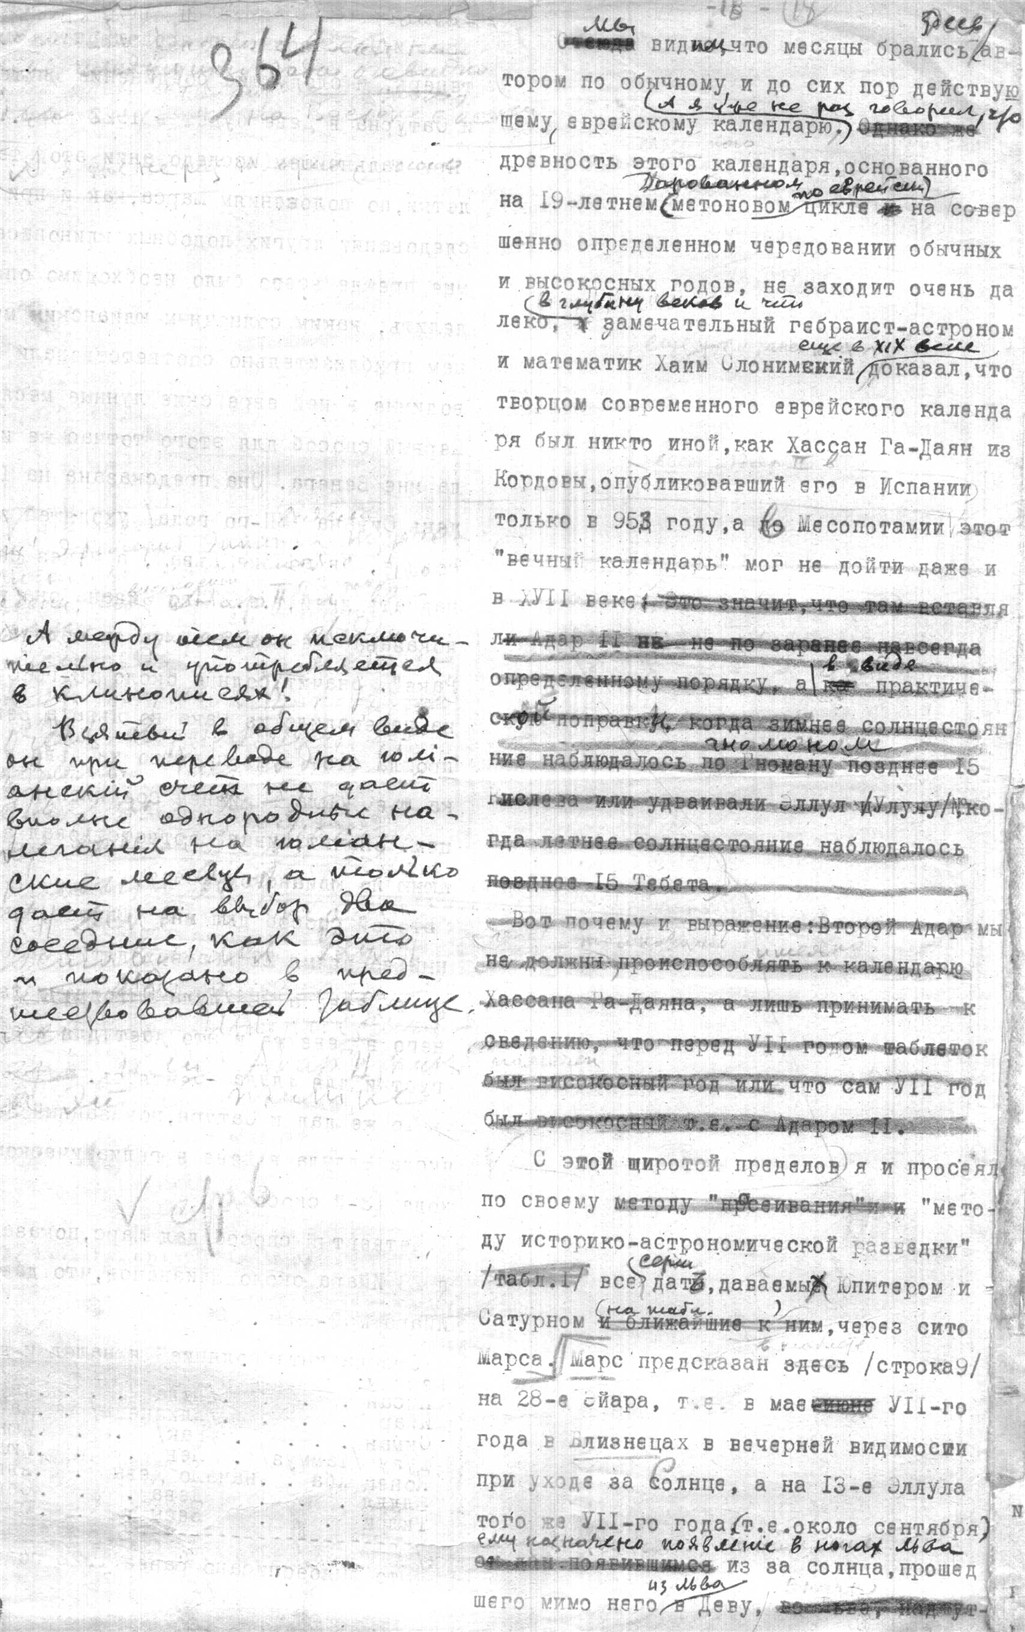 364
- 18
Мы
видим, что месяцы брались ав-
тором по обычному, и до сих пор действую
(А я уже не раз говорил, что
щему, еврейскому календарю.) Однако же
древность этого календаря, основанного
Дарованном по еврейски)
на 19-летнем (метоновом цикле на совер
шенно определенном чередовании обычных
и высокосных годов, не заходит очень да
(в глубину веков и что
леко, замечательный гебраист-астроном
еще в XIX веке
и математик Хаим Слонимский доказал, что
творцом современного еврейского календа
ря был никто иной, как Хассан Га-Даян из
Кордовы, опубликовавший его в Испании
только в 953 году, а в Месопотамии этот
"вечный календарь" мог не дойти даже и
в ХУII веке; Это значит, что там вставля
ли Адар II не по заранее навсегда
в виде
определенному порядку, а практиче-
ской поправки, когда зимнее солнцестоян
гномоном
ние наблюдалось по Гноману позднее 15
Кислева или удваивали Эллул /Улулу/, ко-
гда летнее солнцестояние наблюдалось
позднее 15 Тебета.
Вот почему и выражение: Второй Адар мы
не должны происпособлять к календарю
Хассана Га-Даяна, а лишь принимать к
сведению, что перед УII годом таблеток
был високосный год или что сам УII год
был высокосный т.е. с Адаром II.
А между тем он исключи-
тельно и употребляется
в клинописях!
Взятый в общем виде
он при переводе на юлі-
анскій счет не дает
вполне однородные на-
леганія на юліан-
ские месяцы, а только
дает на выбор два
соседние, как это
и показано в пред-
шествовавшей таблице.
С этой широтой пределов) я и просеял
по своему методу "просеивания" и "мето-
ду историко-астрономической разведки"
серии
/табл.I/ все дат, даваемых Юпитером и
(на табл. )
Сатурном и ближайшие к ним, через сито
Марса. Марс предсказан здесь /строка 9/
на 28-е Ойара, т.е. в мае-июне УII-го
года в Близнецах в вечерней видимости
при уходе за Солнце, а на 13-е Эллула
того же УII-го года (т.е. около сентября)
ему назначено появление в ногах Льва
появившимся из за солнца, прошед
из Льва
шего мимо него в Деву,